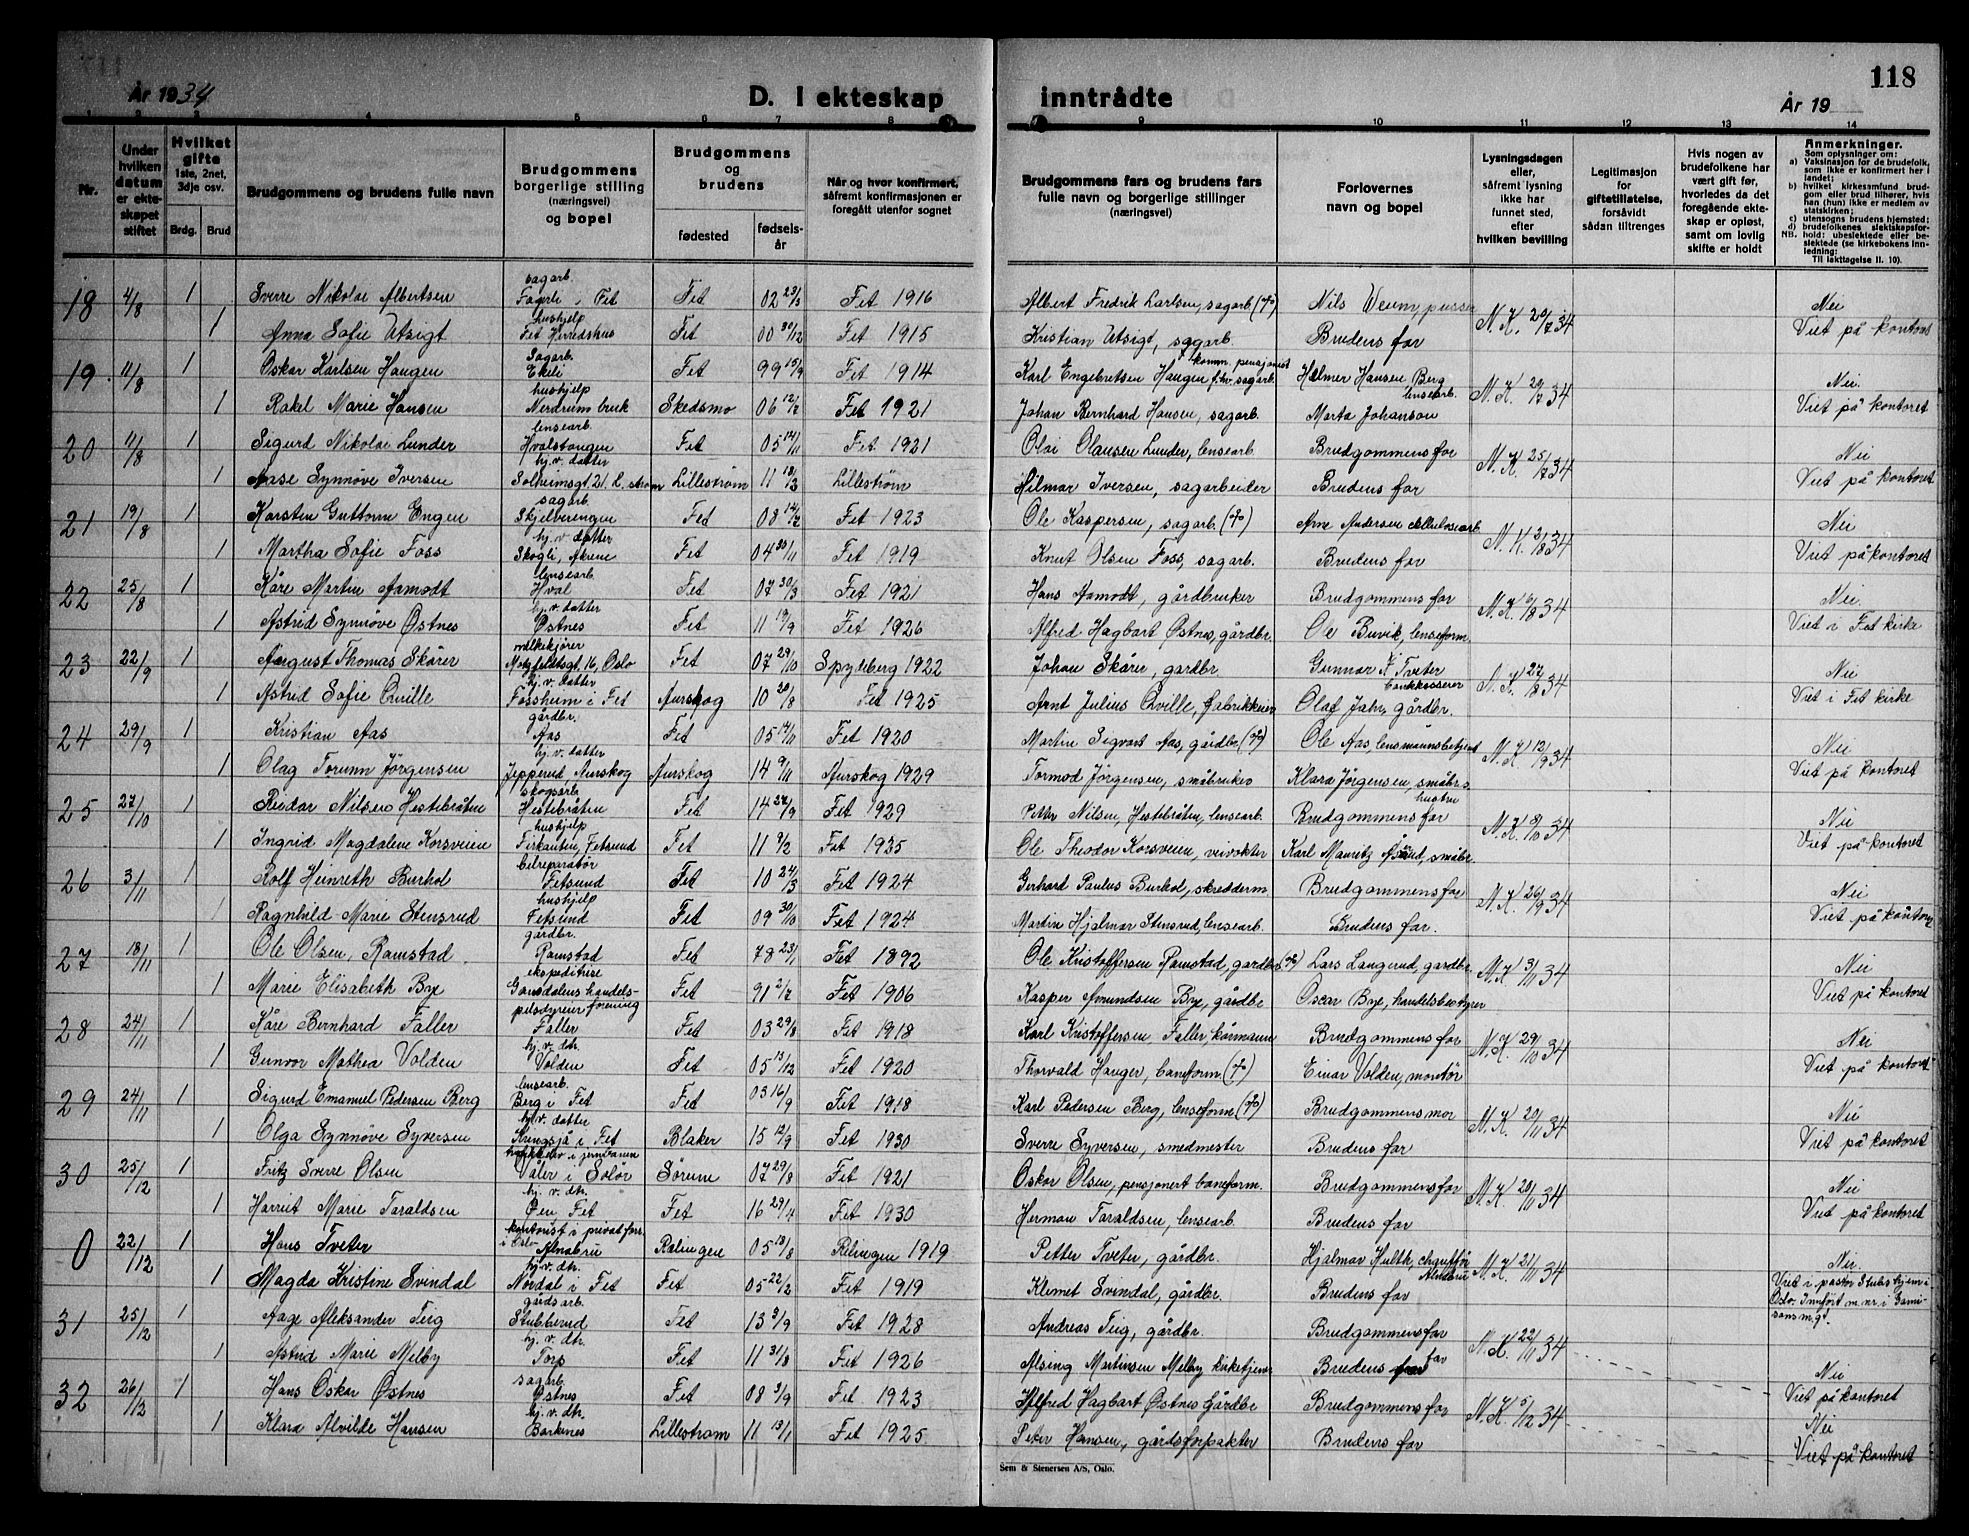 118
År 1934
D. I ekteskap inntrådte
År 19
1 2 3 4 5 6 7 8 9 10 11 12 13 14
Nr.
Under hvilken datum er ekteskapet stiftet
Hvilket gifte 1ste, 2net, 3dje osv.
Brdg. Brud
Brudgommens og brudens fulle navn
Brudgommens borgerlige stilling (næringsvei) og bopel
Brudgommens og brudens
fødested
fødselsår
Når og hvor konfirmert, såfremt konfirmasjonen er foregått utenfor sognet
Brudgommens fars og brudens fars fulle navn og borgerlige stillinger (næringsvei)
Forlovernes navn og bopel
Lysningsdagen eller, såfremt lysning ikke har funnet sted, efter hvilken bevilling
Legitimasjon for giftetillatelse, forsåvidt sådan tiltrenges
Hvis nogen av brudefolkene har vært gift før, hvorledes da det foregående ekteskap er opløst, samt om lovlig skifte er holdt
Anmerkninger.
Som oplysninger om:
a) Vaksinasjon for de brudefolk, som ikke er konfirmert her i landet;
b) hvilket kirkesamfund brudgom eller brud tilhører, hvis han (hun) ikke er medlem av statskirken;
c) utensogns brudens hjemsted;
d) brudefolkenes slektskapsforhold: ubeslektede eller beslektede (se kirkebokens innledning:
NB. Til iakttagelse II. 10).
18 4/8 1 Sverre Nikolai Albertsen sagarb. Fagerli, Fet Fet 02 23/3 Fet 1916 Albert Fredrik Larlsen, sagarb. Nils Veum, N.K. 20/7 34 Nei
1 Anna Sofie Utsigt hushjelp Fet Herredshus Fet 00 30/12 Fet 1915 Kristian Utsigt, sagarb. Brudens far Viet på kontoret
19 11/8 1 Oskar Karlsen Haugen Sagarb. Ekeli Fet 99 15/9 Fet 1914 Karl Engebretsen Haugen f.hv. sagarb. komm. pensjonist Hilmer Hansen, Berg lensearb. N.K. 20/7 34 Nei.
1 Rakel Marie Hansen hushjelp Nerdrum bruk Skedsmo 06 12/7 Fet 1921 Johan Bernhard Hansen, sagarb. Marta Johanson Viet på kontoret
20 11/8 1 Sigurd Nikolai Lunder lensearb. Hvalstangen Fet 05 14/11 Fet 1921 Olai Olausen Lunder, lensearb. Brudgommens far N.K. 25/7 34 Nei
1 Aase Synnøve Iversen hj. v. datter Solheimsgt. 21. L. strøm Lillestrøm 11 18/3 Lillestrøm Hilmar Iversen, sagarbeider Brudens far Viet på kontoret
21 19/8 1 Karsten Guttorm Engen sagarb. Skjelverengen Fed 08 14/2 Fet 1923 Ole Kaspersen, sagarb. Arne Andersen cellulosearb. N.K. 2/8 34 Nei
1 Martha Sofie Foss hj. v. datter Skogli, Akrene Fet 04 30/11 Fet 1919 Knut Olsen Foss, sagarb. Brudens far Viet på kontoret
22 25/8 1 Kåre Martin Aamodt lensearb. Hval Fet 07 30/3 Fet 1921 Hans Aamodt, gårdbruker Brudgommens far N.K. 6/8 34 Nei.
1 Astrid Synnøve Østnes hj. v. datter Østnes Fet 11 19/9 Fet 1926 Alfred Hagbart Østnes, gårdbr. Ole Buvik, lenseform. Viet i Fet kirke
23 22/9 1 August Thomas Skårer melkekjører Motzfeldtsgt. 16, Oslo Fet 07 29/10 Spydeberg 1922 Johan Skårer, gårdbr Gunnar F. Tveter bankkasserer N.K. 27/8 34 Nei
1 Astrid Sofie Qville hj. v. datter Fossheim i Fet Aurskog 10 20/8 Fet 1925 Arnt Julius Qville, fabrikkeier Olaf Jahr, gårdbr. Viet i Fet kirke
24 29/9 1 Kristian Aas gårdbr. Aas Fet 05 14/11 Fet 1920 Martin Sigvart Aas, gårdbr. Ole Aas, lensmannsbetjent N.K. 12/9 34 Nei
1 Olag Torunn Jørgensen hj. v. datter Jepperud, Aurskog Aurskog 14 9/11 Aurskog 1929 Tormod Jørgensen, småbruker Klara Jørgensen, småbr.s hustru Viet på kontoret
25 27/10 1 Reidar Nilsen Hestebråten skogsarb. Hestebråten Fet 14 27/9 Fet 1929 Petter Nilsen, Hestebråten, lensearb. Brudgommens far N.K. 8/10 34 Nei
1 Ingrid Magdalene Korsveien hushjelp Firkanten, Fetsund Fet 11 9/2 Fet 1925 Ole Theodor Korsveien, veivokter Karl Mauritz Åsund, småbr. Viet på kontoret
26 3/11 1 Rolf Heinreth Burhol bilreparatør Fetsund Fet 10 24/3 Fet 1924 Gerhard Paulus Burhol, skredderm Brudgommens far N.K. 26/9 34 Nei
1 Ragnhild Marie Stensrud hushjelp Fetsund Fet 09 30/10 Fet 1924 Martin Hjalmar Stensrud, lensearb. Brudens far. Viet på kontoret
27 18/11 1 Ole Olsen Ramstad gårdbr. Ramstad Fet 78 23/1 Fet 1892 Ole Kristoffersen Ramstad, gårdbr. Lars Langerud, gårdbr. N.K. 3/11 34 Nei
1 Marie Elisabeth Bye ekspeditrise Gansdalens handelsforening Fet 91 2/7 Fet 1906 Kasper Amundsen Bye, gårdbr Oscar Bye, handelsbestyrer Viet på kontoret
28 24/11 1 Kåre Bernhard Faller pelsdyreier Faller Fet 03 29/8 Fet 1918 Karl Kristoffersen Faller, kørmann Brudgommens far N.K. 29/10 34 Nei
1 Gunvor Mathea Volden hj. v. dtr. Volden Fet 05 13/12 Fet 1920 Thorvald Hauger, baneform. Einar Volden, montør Viet på kontoret
29 24/11 1 Sigurd Emanuel Pedersen Berg lensearb. Berg i Fet Fet 03 16/9 Fet 1918 Karl Pedersen Berg, lenseform. Brudgommens mor N.K. 20/11 34 Nei
1 Olga Synnøve Syversen hj. v. datter Kringsjå i Fet Blaker 15 12/9 Fet 1930 Sverre Syversen, smedmester Brudens far Viet på kontoret
30 25/12 1 Fritz Sverre Olsen i jernbanen Våler i Solør Sørum 07 29/8 Fet 1921 Oskar Olsen, pensjonert baneform. Brudgommens far N.K. 20/11 34 Nei
1 Harriet Marie Taraldsen hj. v. dtr. Øen Fet Fet 16 29/4 Fet 1930 Herman Taraldsen, lensearb. Brudens far Viet på kontoret
0 22/12 1 Hans Tveter kontorist i privat forr. i Oslo Alnabru Rælingen 05 13/8 Rælingen 1919 Petter Tveter, gårdbr. Hjalmar Hulth, chauffør Alnabru N.K. 21/11 34 Nei.
1 Magda Kristine Svindal hj. v. dtr. Nordal i Fet Fet 05 22/2 Fet 1919 Klemet Svindal, gårdbr. Brudens far Viet i pastor Stubs hjem i Oslo. Innført m. nr. i Garnisonsmgt.
31 25/12 1 Aage Aleksander Teig gårdsarb. Stubberud Fet 13 3/9 Fet 1928 Andreas Teig, gårdbr. Brudgommens far N.K. 22/11 34
1 Astrid Marie Melby hj. v. dtr. Torp Fet 11 31/8 Fet 1926 Alsing Martinsen Melby kirketjener Brudens far Nei Viet på kontoret
32 26/12 1 Hans Oskar Østnes sagarb. Østnes Fet 08 3/9 Fet 1923 Alfred Hagbart Østnes Gårdbr Brudgommens far N.K. 5/12 34 Nei
1 Klara Alvilde Hansen hj. v. dtr. Barkenes Lillestrøm 11 13/1 Fet 1925 Peter Hansen, gårdsforpakter Brudens far Viet på kontoret
Sem & Stenersen A/S, Oslo.